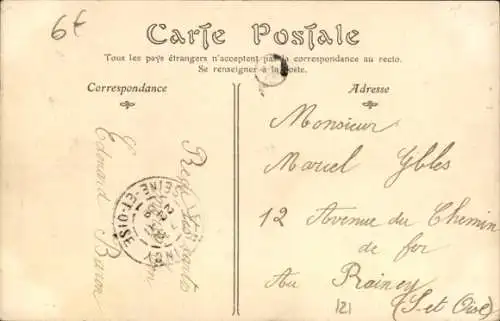 6€
Carte Postale
Tous les pays étrangers n'acceptent pas la correspondance au recto.
Se renseigner à la poste.
Correspondance
Adresse
Edouard Baron
SEINE-ET-OISE
Monsieur
Marcel Gbles
12 Avenue du Chemin
de fer
Au Raincy
121
(S et Oise)